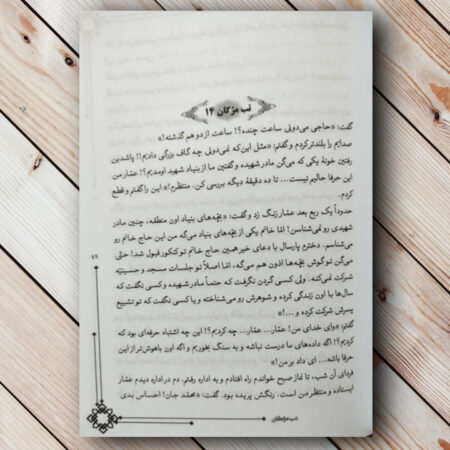 تب مژگان ۱۴
گفت: «حاجی می‌دونی ساعت چنده؟! ساعت از دو هم گذشته!»
صدایم را بلندتر کردم و گفتم: «مثل این‌که نمی‌دونی چه گاف بزرگی دادیم!! پاشدین
رفتین خونهٔ یکی که می‌گن مادر شهیده و گفتین ما از بنیاد شهید اومدیم؟! عمّار من
این حرفا حالیم نیست... تا ده دقیقهٔ دیگه بررسی کن. منتظرم!» این را گفتم و قطع
کردم.
حدوداً یک ربع بعد عمّار زنگ زد و گفت: «بچّه‌های بنیاد اون منطقه، چنین مادر
شهیدی رو نمی‌شناسن! امّا خانم یکی از بچّه‌های بنیاد می‌گه من این حاج خانم رو
می‌شناسم. دخترم پارسال با دعای خیر همین حاج خانم تو کنکور قبول شد! حتی
می‌گن تو گوش بچّه‌ها اذون هم می‌گه. امّا اصلاً تو جلسات مسجد و حسینیّه
شرکت نمی‌کنه. ولی کسی گردن نگرفت که حتماً مادر شهیده و کسی نگفت که
سال‌ها با اون زندگی کرده و شوهرش رو می‌شناخته و یا کسی نگفت که تو تشییع
پسرش شرکت کرده و ...!»
گفتم: «وای خدای من! عمّار... عمّار... چه کردیم؟! این چه اشتباه حرفه‌ای بود که
کردیم؟! اگه داده‌های ما درست نباشه و به سنگ بخوریم و اگه اون باهوش‌تر از این
حرفا باشه... ای داد بر من!»
فردای آن شب، تا نماز صبح خواندم راه افتادم و به اداره رفتم. دم در اداره دیدم عمّار
ایستاده و منتظر من است. رنگش پریده بود. گفت: «محمّد جان! احساس بدی
۴۹
تب مژگان